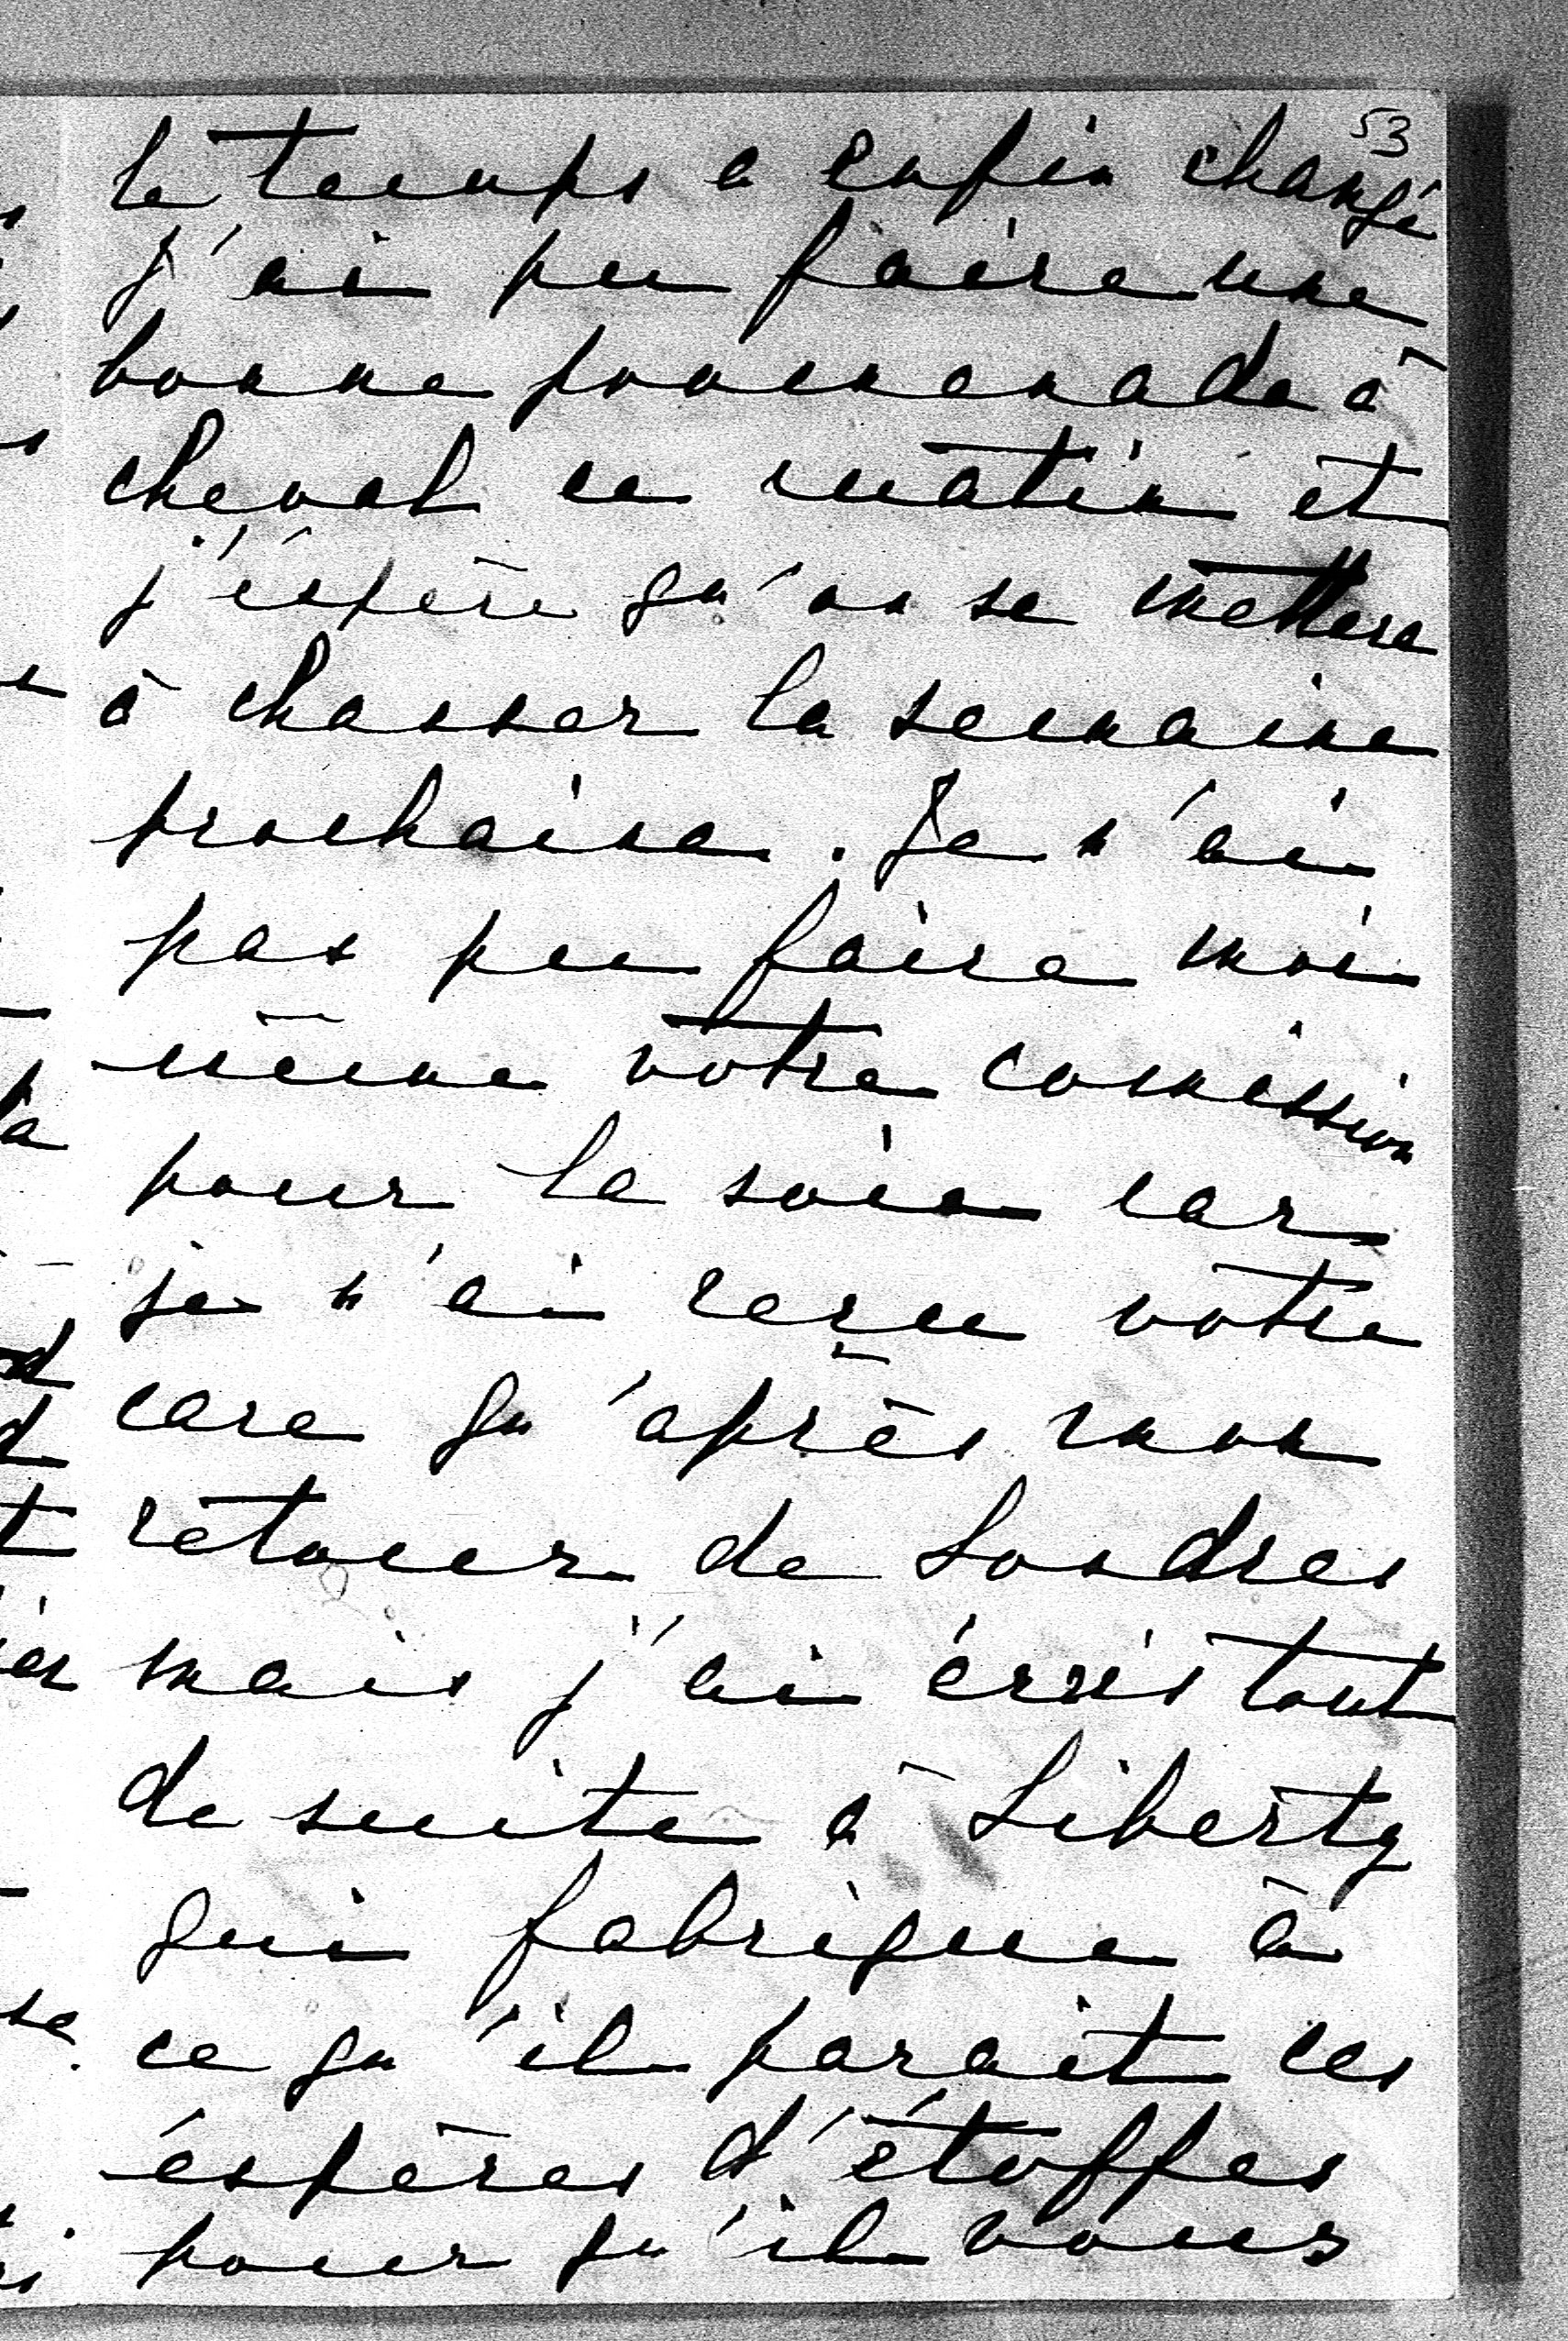 53
le temps a enfin changé
j'ai pu faire une
bonne promenade à
cheval ce matin et
j'éspère qu'on se mettera
à chasser la semaine
prochaine. Je n'ai
pas pu faire moi
même votre comission
pour la soie car
je n'ai reçu votre
care qu'après mon
retour de Londres
mais j'ai écris tout
de suite à Liberty
qui fabrique à
ce qu'il parait ces
éspèces d'étoffes
pour qu'il vous